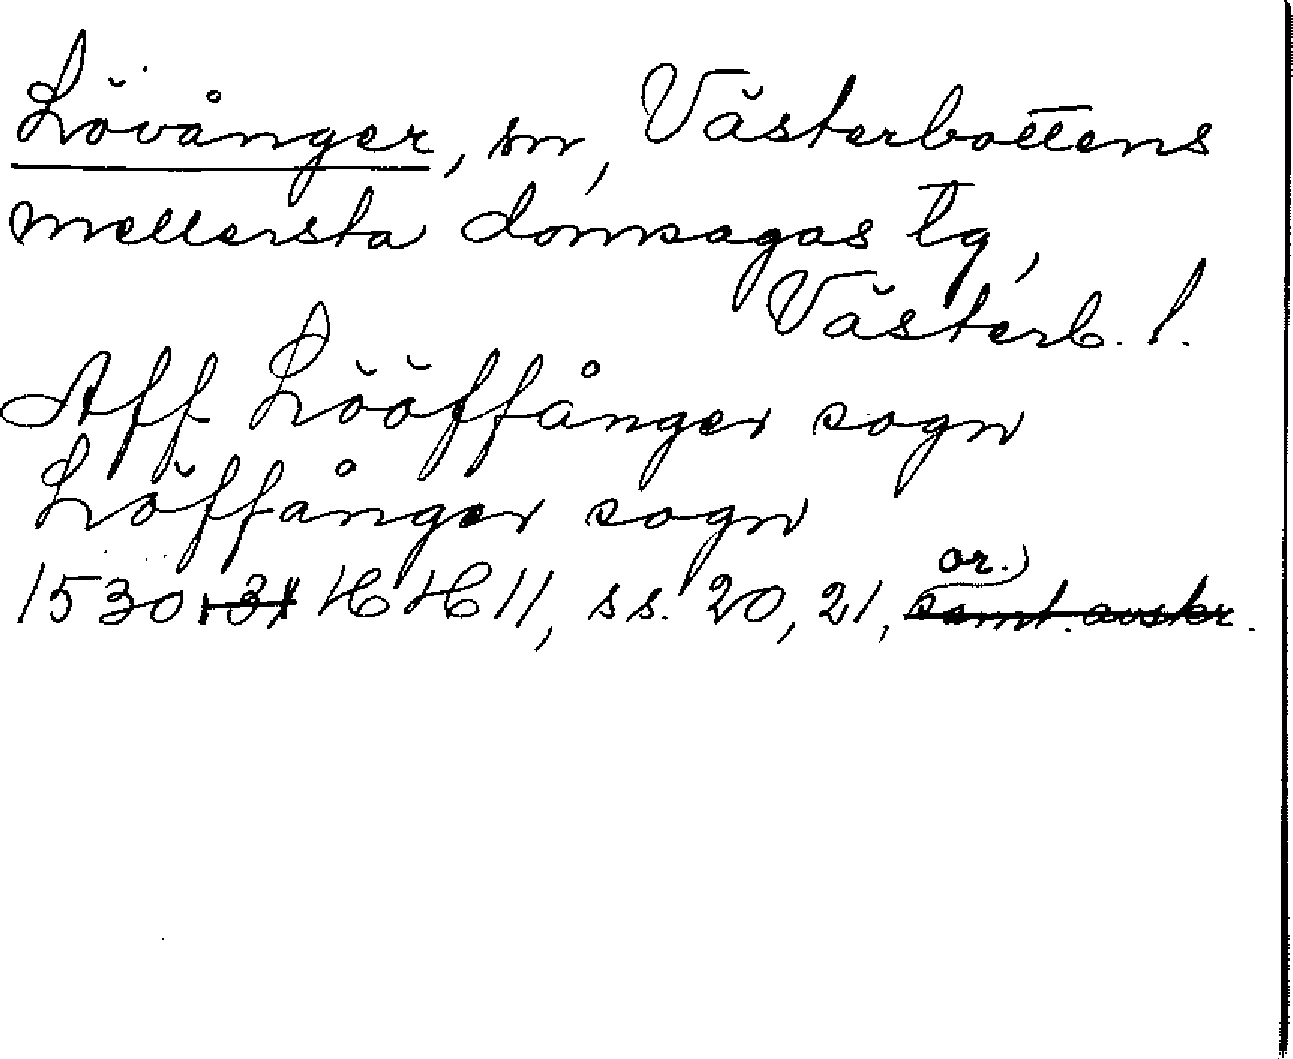 Lövånger, sn, Västerbottens
mellersta domsagas tg,
Västerb. l.
Aff Lööffånger sogn
Löffånger sogn
or.)
1530, 31 HH 11, ss. 20, 21, samt. avskr.